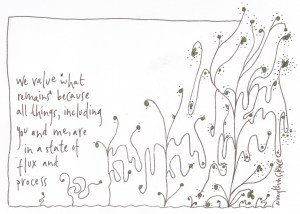 we value "what
remains" because
all things, including
you and me, are
in a state of
flux and
process